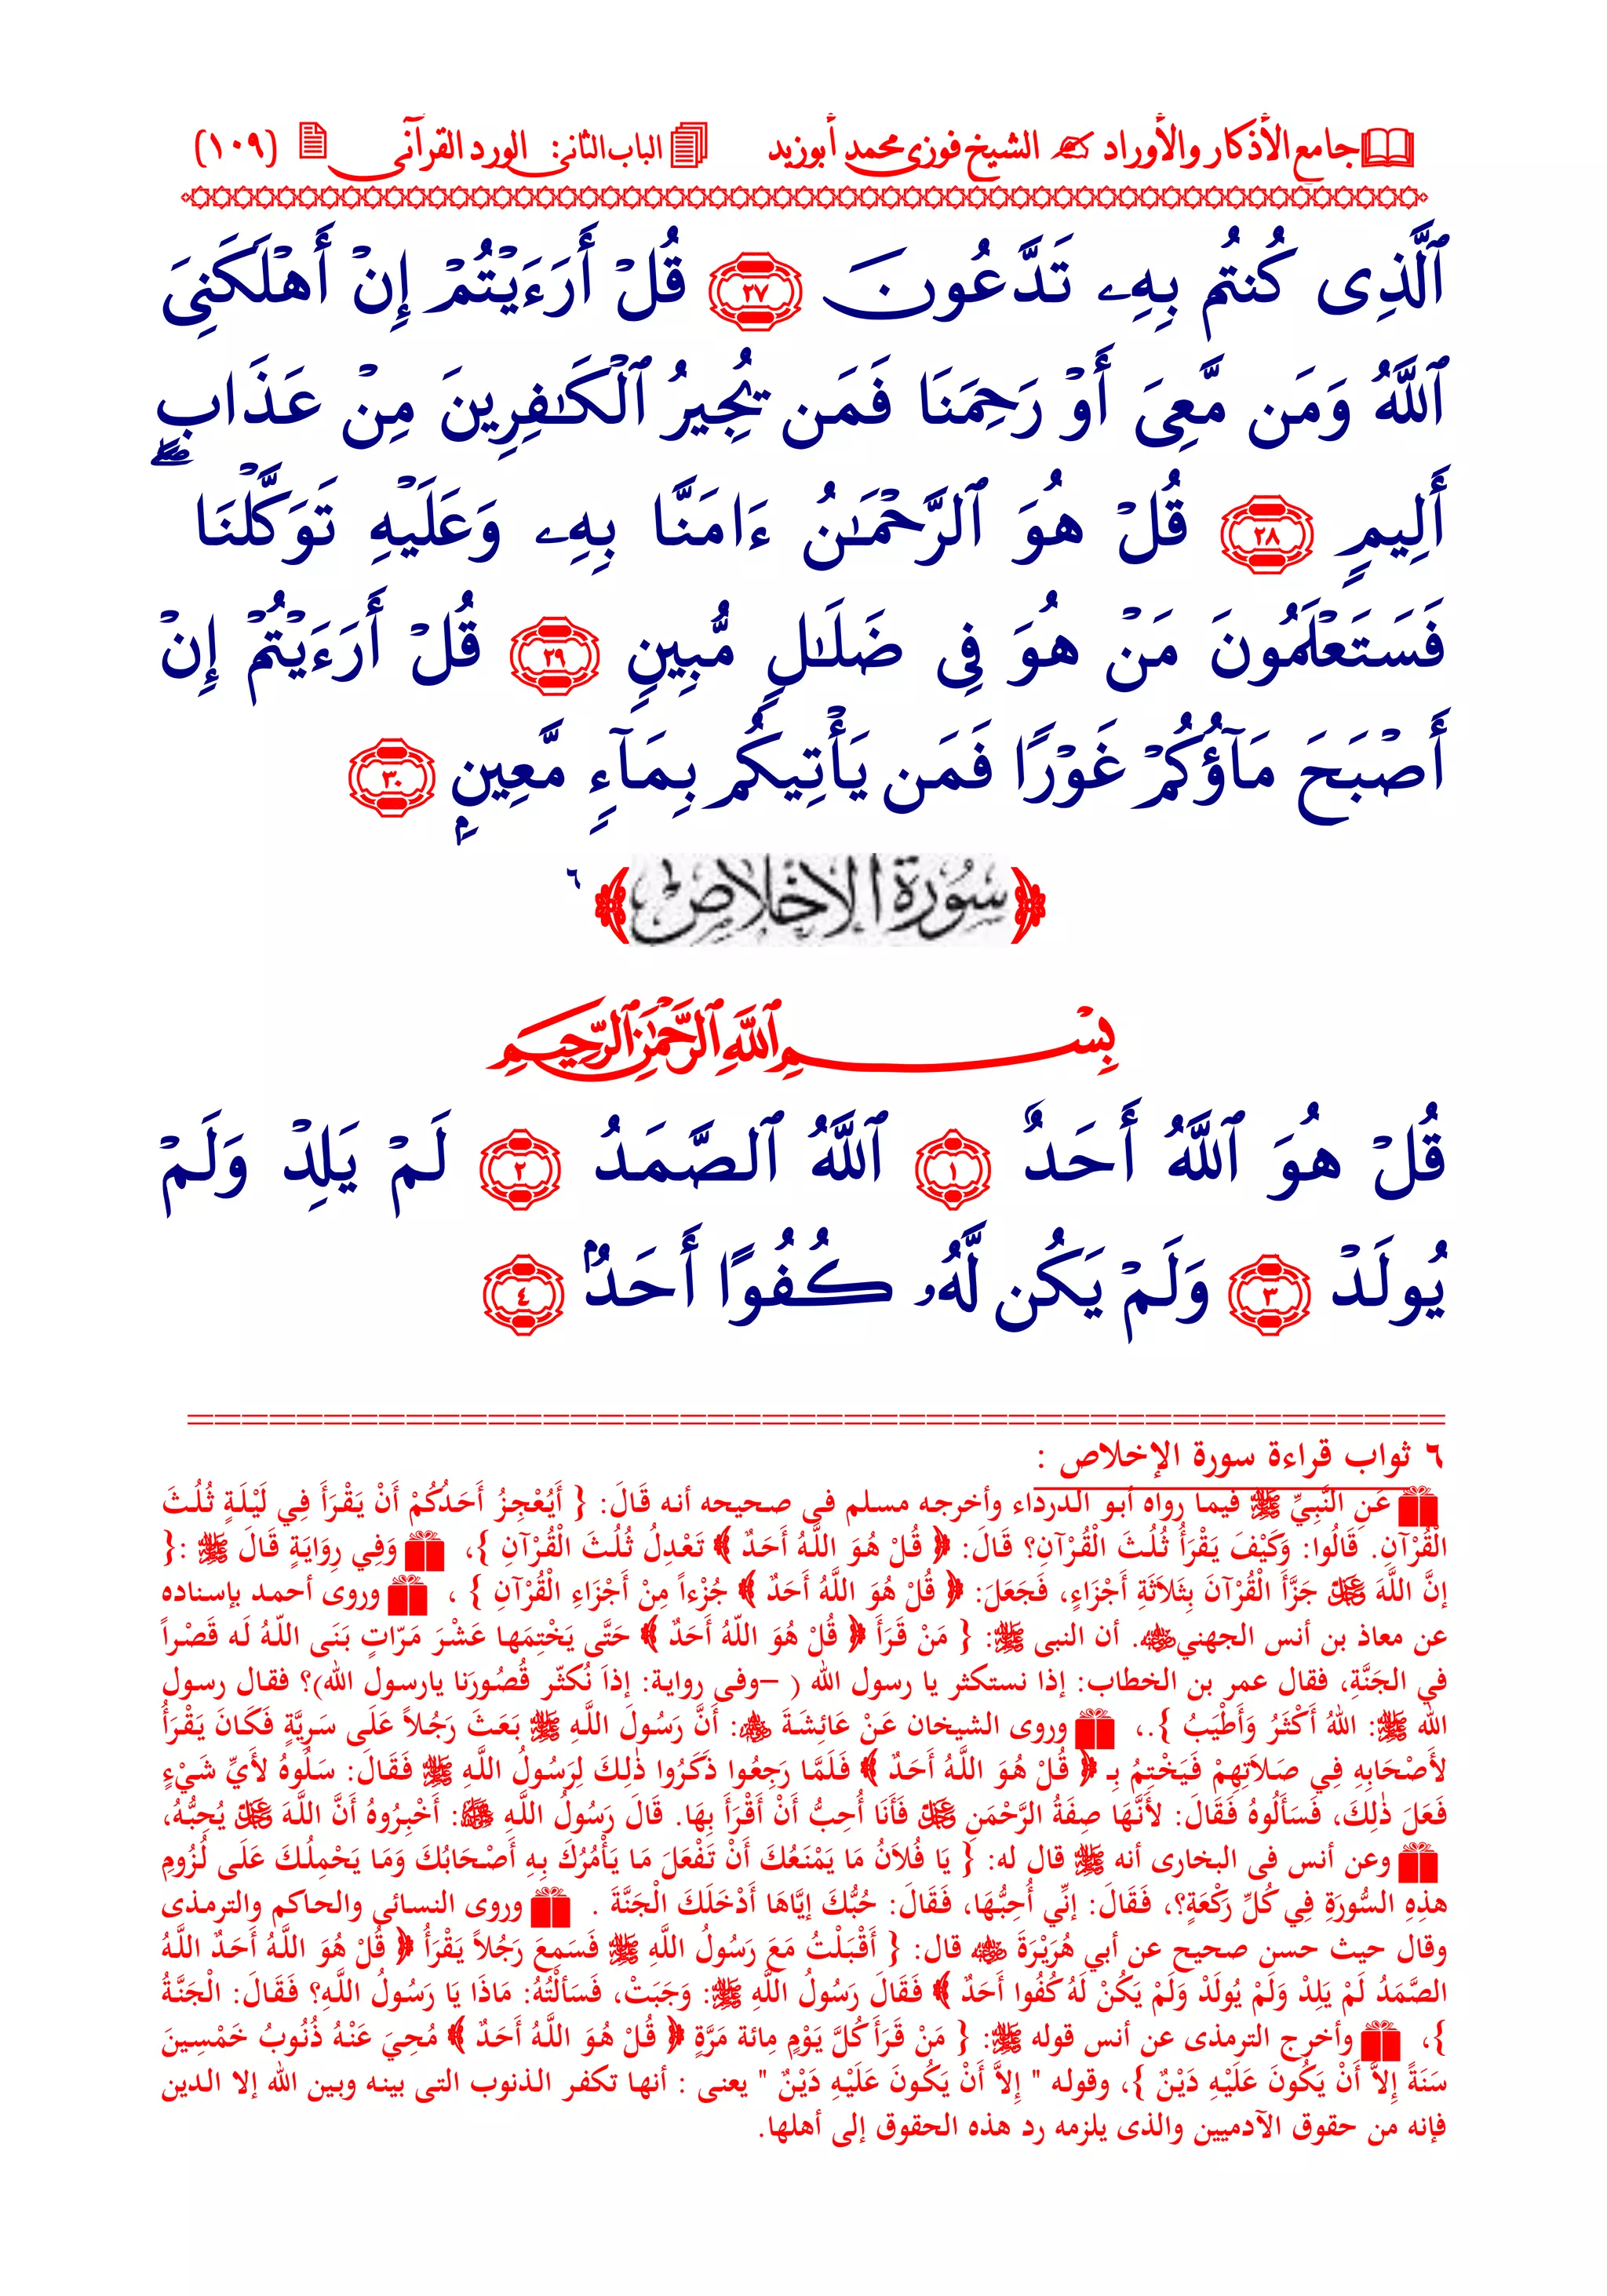 جامع الأذكار والأوراد الشيخ فوزى محمد أبوزيد الباب الثانى: الورد القرآنى (١٠٩)
ٱلَّذِى كُنتُم بِهِۦ تَدَّعُونَ ٢٧ قُلْ أَرَءَيْتُمْ إِنْ أَهْلَكَنِىَ
ٱللَّهُ وَمَن مَّعِىَ أَوْ رَحِمَنَا فَمَن يُجِيرُ ٱلْكَـٰفِرِينَ مِنْ عَذَابٍ
أَلِيمٍ ٢٨ قُلْ هُوَ ٱلرَّحْمَـٰنُ ءَامَنَّا بِهِۦ وَعَلَيْهِ تَوَكَّلْنَا ۖ
فَسَتَعْلَمُونَ مَنْ هُوَ فِى ضَلَـٰلٍ مُّبِينٍ ٢٩ قُلْ أَرَءَيْتُمْ إِنْ
أَصْبَحَ مَآؤُكُمْ غَوْرًا فَمَن يَأْتِيكُم بِمَآءٍ مَّعِينٍۭ ٣٠
﴿سُورَة الإِخْلَاصِ﴾ ٦
بِسْمِ ٱللَّهِ ٱلرَّحْمَـٰنِ ٱلرَّحِيمِ
قُلْ هُوَ ٱللَّهُ أَحَدٌ ١ ٱللَّهُ ٱلصَّمَدُ ٢ لَمْ يَلِدْ وَلَمْ
يُولَدْ ٣ وَلَمْ يَكُن لَّهُۥ كُفُوًا أَحَدٌۢ ٤
٦ ثواب قراءة سورة الإخلاص :
عَنِ النَّبِيِّ ﷺ فيما رواه أبو الدرداء وأخرجه مسلم فى صحيحه أنه قَالَ: { أَيُعْجِزُ أَحَدُكُمْ أَنْ يَقْرَأَ فِي لَيْلَةٍ ثُلُثَ
الْقُرْآنِ. قَالُوا: وَكَيْفَ يَقْرَأُ ثُلُثَ الْقُرْآنِ؟ قَالَ: ﴿ قُلْ هُوَ اللَّهُ أَحَدٌ ﴾ تَعْدِلُ ثُلُثَ الْقُرْآنِ }، وَفِي رِوَايَةٍ قَالَ ﷺ :{
إنَّ اللَّهَ ﷻ جَزَّأَ الْقُرْآنَ بِثَلاَثَةِ أَجْزَاءٍ، فَجَعَلَ: ﴿ قُلْ هُوَ اللَّهُ أَحَدٌ ﴾ جُزْءاً مِنْ أَجْزَاءِ الْقُرْآنِ } ، وروى أحمد بإسناده
عن معاذ بن أنس الجهني. أن النبى ﷺ: { مَنْ قَرَأَ ﴿ قُلْ هُوَ اللّهُ أَحَدٌ ﴾ حَتَّى يَخْتِمَها عَشْرَ مَرّاتٍ بَنَى اللّهُ لَه قَصْراً
في الجَنَّةِ، فقال عمر بن الخطاب: إذا نستكثر يا رسول الله ( –وفى رواية: إذاَ نُكثّر قُصُورَنا يارسول الله)؟ فقال رسول
الله ﷺ: اللهُ أَكْثَرُ وَأَطْيَبُ }.، وروى الشيخان عَنْ عَائِشَةَ : أَنَّ رَسُولَ اللَّهِ ﷺ بَعَثَ رَجُلاً عَلَى سَرِيَّةٍ فَكَانَ يَقْرَأُ
لأَصْحَابِهِ فِي صَلاَتِهِمْ فَيَخْتِمُ بِـ ﴿ قُلْ هُوَ اللَّهُ أَحَدٌ ﴾ فَلَمَّا رَجِعُوا ذَكَرُوا ذٰلِكَ لِرَسُولُ اللَّهِ ﷺ فَقَالَ: سَلُوهُ لأَيِّ شَيْءٍ
فَعَلَ ذٰلِكَ، فَسَأَلُوهُ فَقَالَ: لأَنَّهَا صِفَةُ الرَّحْمَنِ ﷻ فَأَنَا أُحِبُّ أَنْ أَقْرَأَ بِهَا. قَالَ رَسُولُ اللَّهِ ﷺ: أَخْبِرُوهُ أَنَّ اللَّهَ ﷻ يُحِبُّهُ،
وعن أنس فى البخارى أنه ﷺ قال له: { يَا فُلاَنُ مَا يَمْنَعُكَ أَنْ تَفْعَلَ مَا يَأْمُرُكَ بِهِ أَصْحَابُكَ وَمَا يَحْمِلُكَ عَلَى لُزُومِ
هذِهِ السُّورَةِ فِي كُلِّ رَكْعَةٍ؟، فَقَالَ: إنِّي أُحِبُّهَا، فَقَالَ: حُبُّكَ إيَّاهَا أَدْخَلَكَ الْجَنَّةَ . وروى النسائى والحاكم والترمذى
وقال حيث حسن صحيح عن أبي هُرَيْرَةَ قال: { أَقْبَلْتُ مَعَ رَسُولُ اللَّهِ ﷺ فَسَمِعَ رَجُلاً يَقْرَأُ ﴿ قُلْ هُوَ اللَّهُ أَحَدٌ اللَّهُ
الصَّمَدُ لَمْ يَلِدْ وَلَمْ يُولَدْ وَلَمْ يَكُنْ لَهُ كُفُوا أَحَدٌ ﴾ فَقَالَ رَسُولُ اللَّهِ ﷺ: وَجَبَتْ، فَسَأَلْتُهُ: مَاذَا يَا رَسُولُ اللَّهِ؟ فَقَالَ: الْجَنَّةُ
}، وأخرج الترمذى عن أنس قوله ﷺ: { مَنْ قَرَأَ كُلَّ يَوْمٍ مِائة مَرَّةٍ ﴿ قُلْ هُوَ اللَّهُ أَحَدٌ ﴾ مُحِيَ عَنْهُ ذُنُوبُ خَمْسِينَ
سَنَةً إِلاَّ أَنْ يَكُونَ عَلَيْهِ دَيْنٌ }، وقوله " إِلاَّ أَنْ يَكُونَ عَلَيْهِ دَيْنٌ " يعنى : أنها تكفر الذنوب التى بينه وبين الله إلا الدين
فإنه من حقوق الآدميين والذى يلزمه رد هذه الحقوق إلى أهلها.